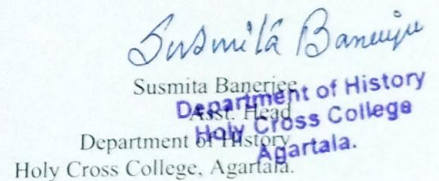 Susmita Banerjee
Susmita Banerjee
Asst. Head
Department of History
Holy Cross College, Agartala.
Department of History
Holy Cross College
Agartala.